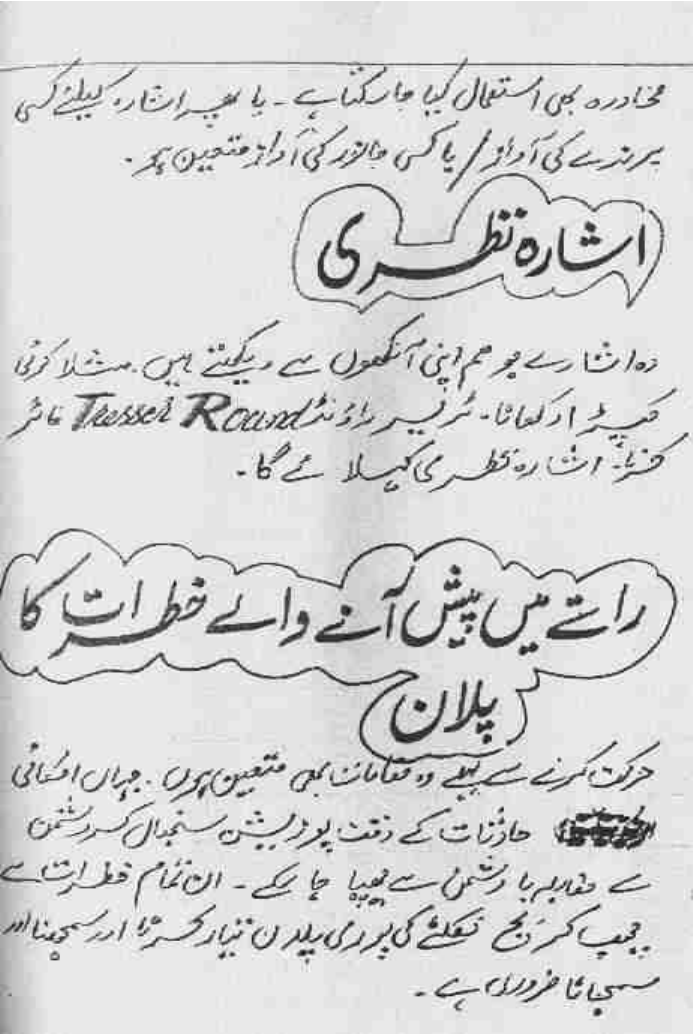 محاورہ بھی استعمال کیا جا سکتا ہے۔ یا پھر اشارہ کیلئے کسی
پرندے کی آواز / یا کسی جانور کی آواز متعین ہو۔
اشارہ نظری
وہ اشارے جو ہم اپنی آنکھوں سے دیکھتے ہیں۔ مثلا کوئی
کپڑا دکھانا۔ ٹریسر راؤنڈ Tresser Round فائر
کرنا۔ اشارہ نظری کہلائے گا۔
راستے میں پیش آنے والے خطرات کا
پلان
حرکت کرنے سے پہلے وہ مقامات بھی متعین ہوں۔ جہاں
حادثات کے وقت پوزیشن سنبھال کر دشمن
سے مقابلہ یا دشمن سے چھپا جا سکے۔ ان تمام خطرات سے
چھپ کر بچ نکلنے کی پوری پلان تیار کرنا اور سمجھنا اور
سمجھانا ضروری ہے۔